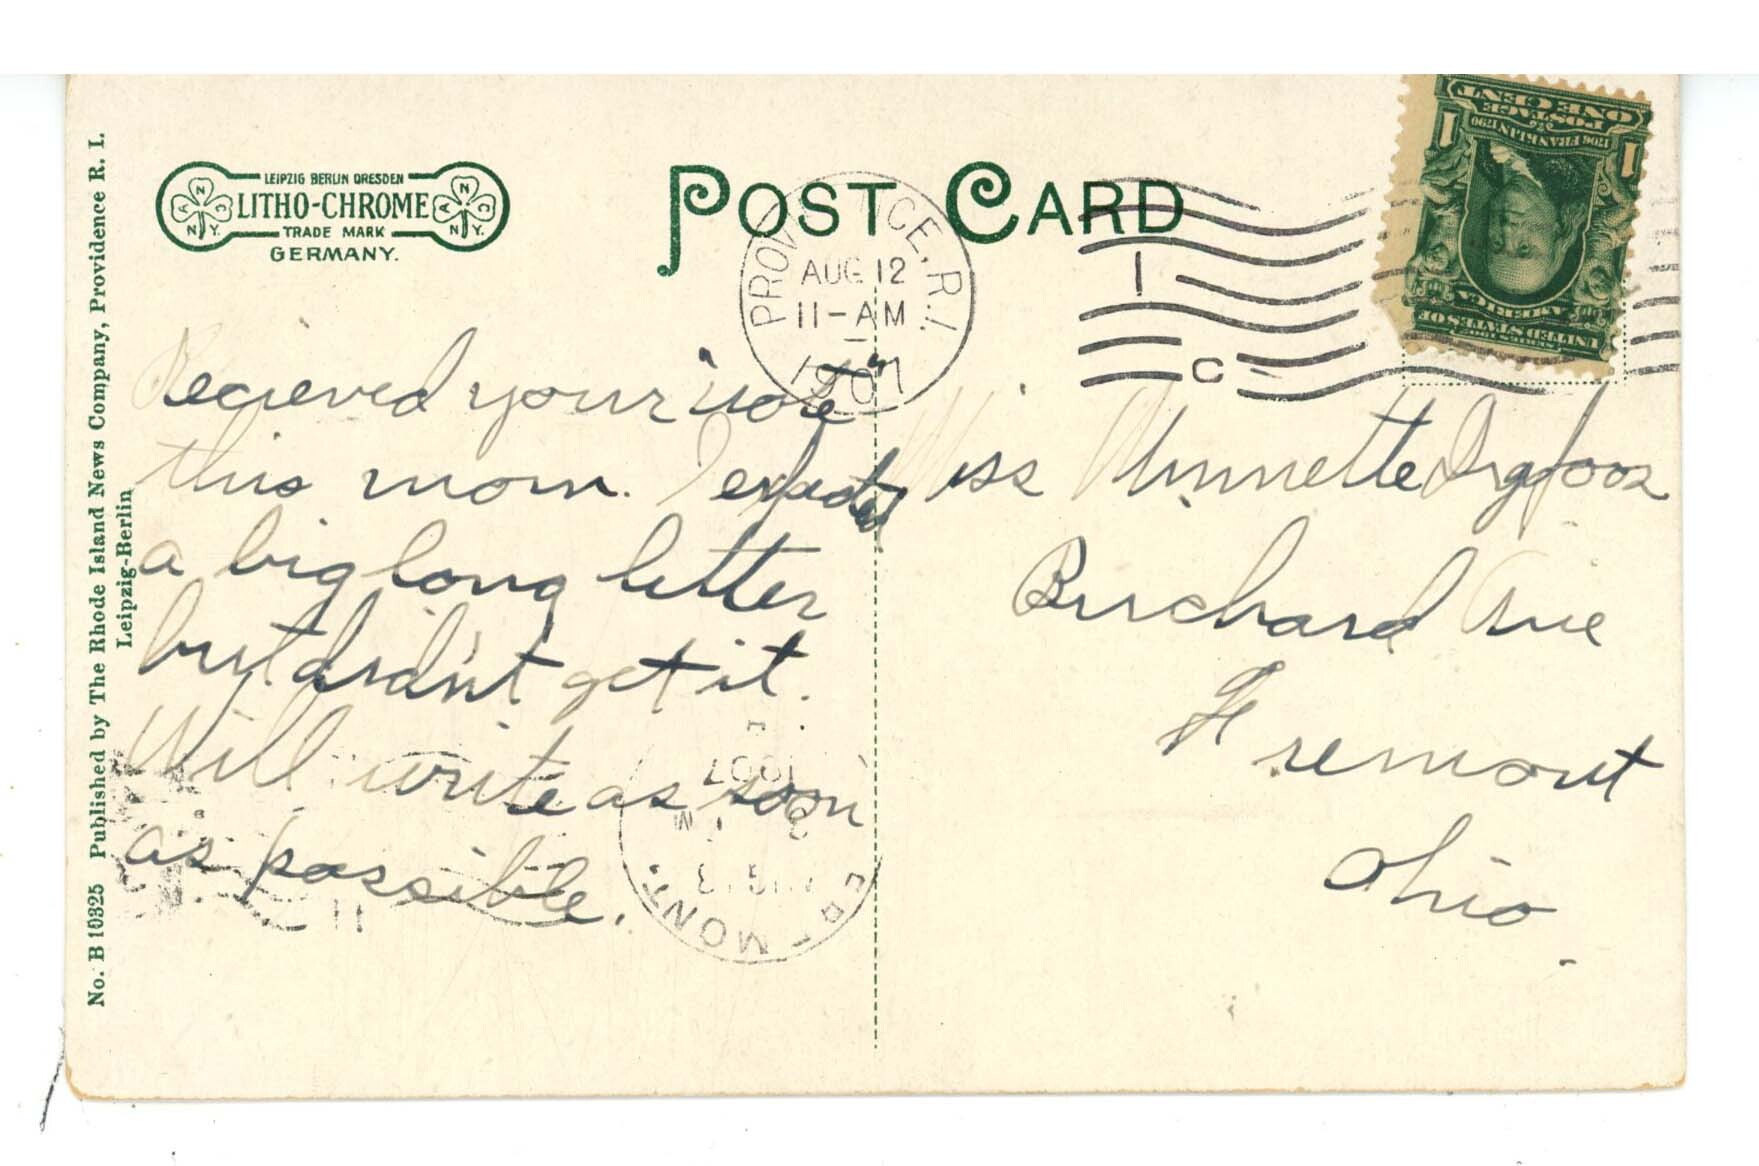 No. B 10325 Published by The Rhode Island News Company, Providence R. I.
Leipzig-Berlin
LEIPZIG BERLIN DRESDEN
LITHO-CHROME
TRADE MARK
GERMANY.
N
A C
N.Y.
N
A C
N.Y.
POST CARD
PROV CE, R.I.
AUG 12
11-AM
1907
1
C
ONE CENT
POSTAGE
1706 FRANKLIN 1790
1 1
UNITED STATES OF
AMERICA
Recieved your "note"
this morn. I expected
a big long letter
but didn't get it.
Will write as soon
as possible.
Miss Minnette
Burchard Ave
Fremont
Ohio
1907
MONT
11